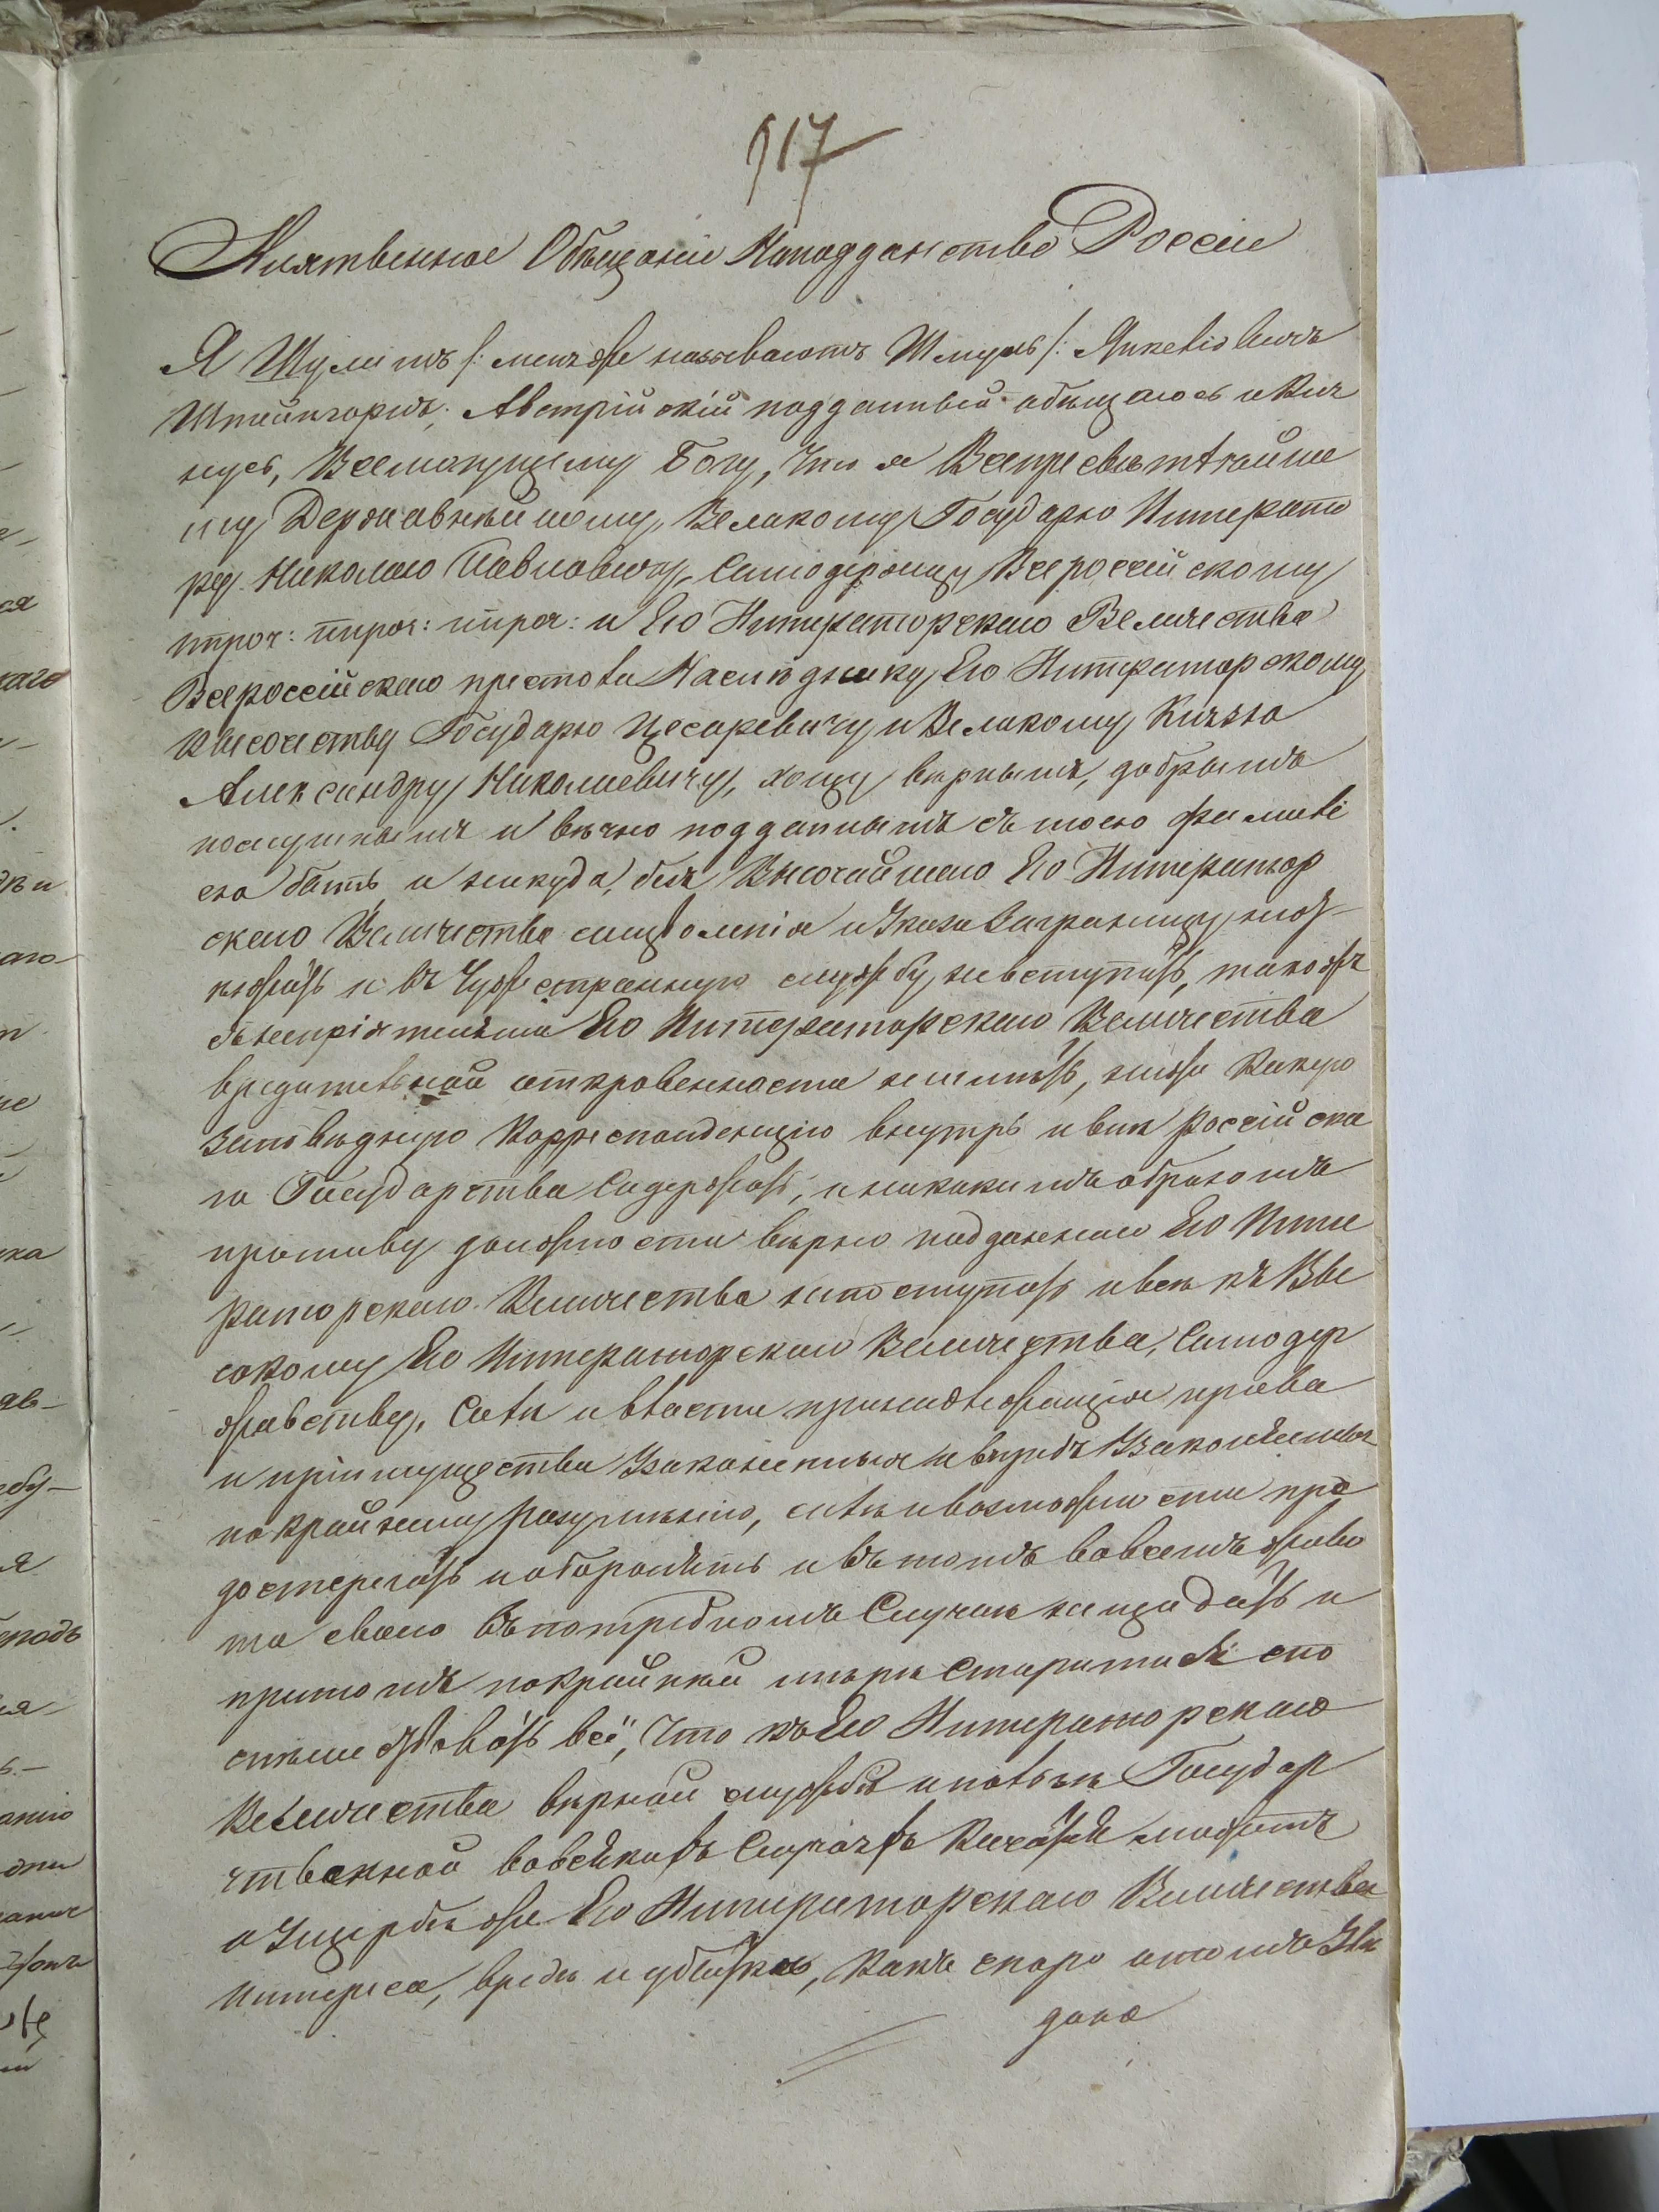 917
Клятвенное Обещаніе Наподданство Россіи
Я Шулимъ /: меня же называютъ Шмуль /: Янкеліовичъ
Штейнгорнъ; Австрійскій подданный обѣщаюсь и Кля
нусь, Всемогущему Богу, что я Всепресвѣтлѣйше
му Державнѣйшему, Великому Государю Императо
ру Николаю Павловичу, Самодержцу Всероссійскому
проч: проч: проч: и Его Императорскаго Величества
Всероссійскаго престола Наслѣднику, Его Императорскому
Высочеству Государю Цесаревичу и Великому Князю
Александру Николаевичу, хощу вѣрнымъ, добрымъ
послушнымъ и вѣчно подданнымъ съ моею фамилі
ею быть, и никуда, безъ Высочайшаго Его Император
скаго Величества соизволенія и Указа Заграницу неотъ
ѣзжать и въ Чужестранную службу невступать, такожъ
съ непріятельми Его Императорскаго Величества
вредительной откровенности неимѣть, ниже Какую
Заповѣдную Корреспонденцію внутрь и внѣ Россійска
го Государства Содержать, и никакимъ образомъ
противу должности вѣрно подданнаго Его Импе
раторскаго Величества непоступать и всѣ къ Вы
сокому Его Императорскаго Величества, Самодер
жавству, Силѣ и власти принадлежащія права
и приимущества Узаконенныя и впредь Узаконяемыя
по Крайнему разумѣнію, силѣ и возможности пре
достерегать и оборонять и въ томъ вовсемъ живо
та своего въ потребномъ Случаѣ нещадать и
притомъ покрайнѣй мѣрѣ Старатися спо
спѣшествовать всё, Что къ Его Императорскаго
Величества вѣрной службѣ и пользѣ Государ
ственной вовсякихъ Случаяхъ Касаться можетъ
о Ущербѣ же Его Императорскаго Величества
интереса, вредѣ и убыткѣ, Какъ скоро отомъ Увѣ
даю